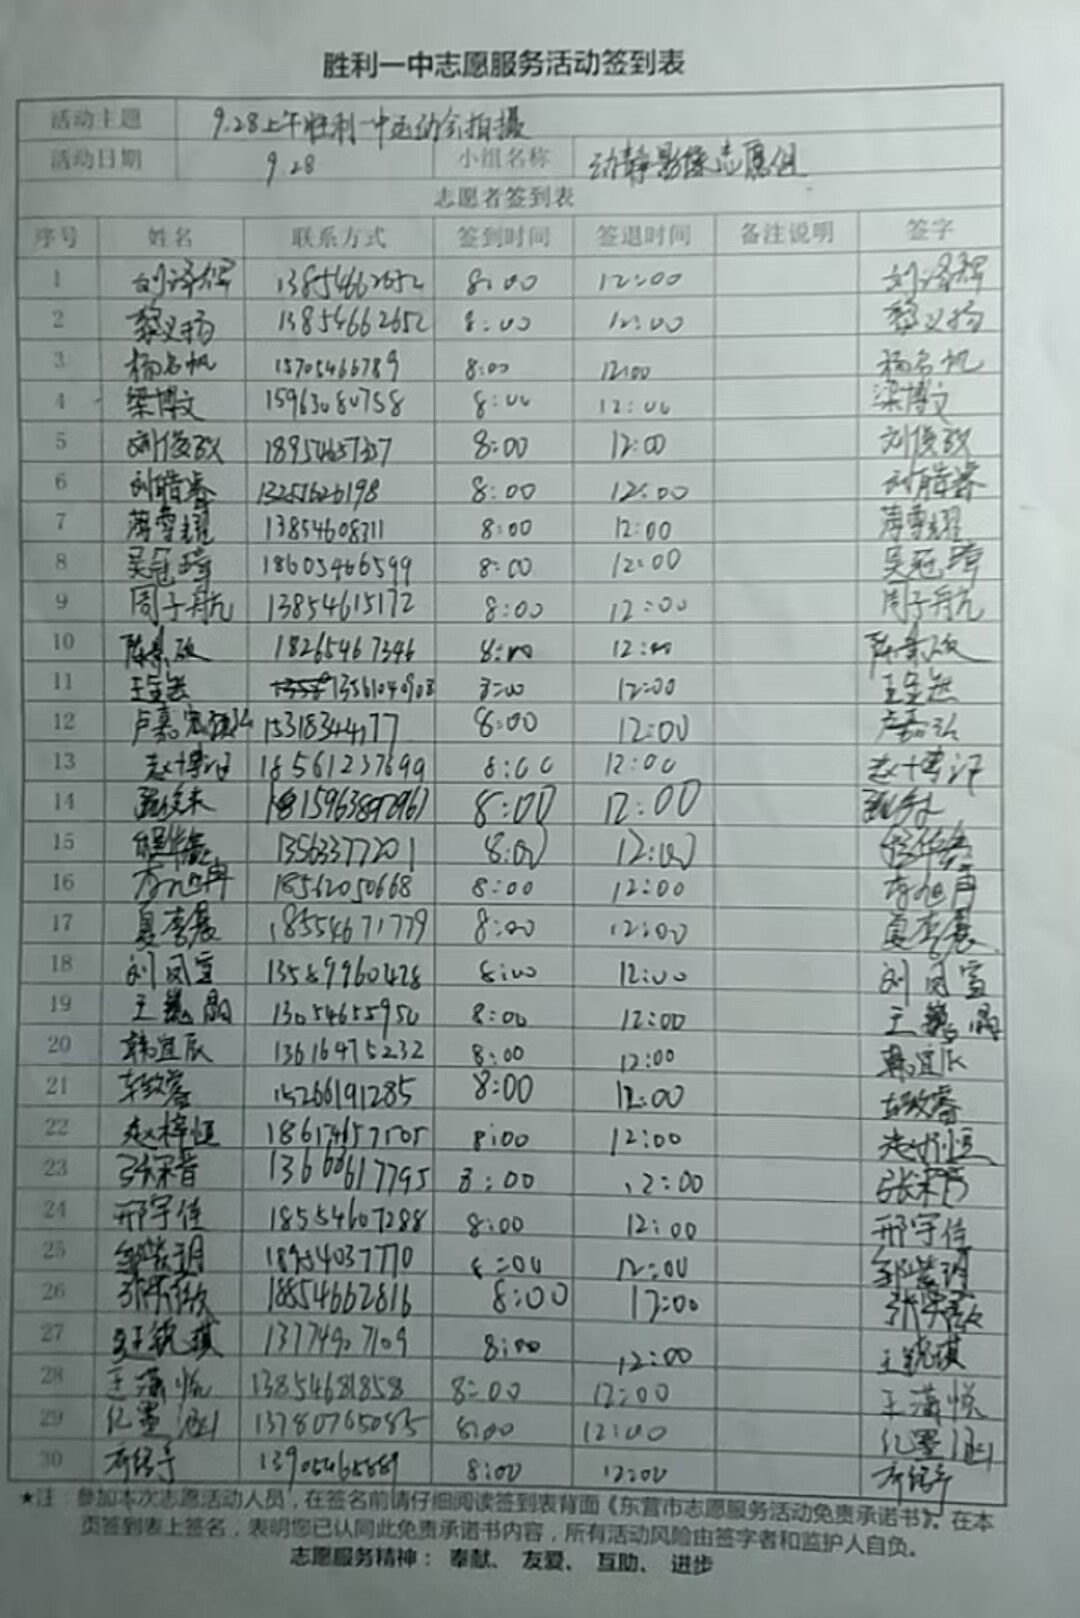 胜利一中志愿服务活动签到表
活动主题 9.28上午胜利一中运动会拍摄
活动日期 9.28 小组名称 动静影像志愿组
志愿者签到表
序号 姓名 联系方式 签到时间 签退时间 备注说明 签字
1 刘泽辉 13854662652 8:00 12:00 刘泽辉
2 黎义扬 13854662652 8:00 12:00 黎义扬
3 杨名帆 15705466789 8:00 12:00 杨名帆
4 梁博文 15963080758 8:00 12:00 梁博文
5 刘俊 18954657337 8:00 12:00 刘俊
6 刘皓睿 8:00 12:00 刘皓睿
7 薄雪耀 13854608311 8:00 12:00 薄雪耀
8 吴冠璋 18605466599 8:00 12:00 吴冠璋
9 周子航 13854615172 8:00 12:00 周子航
10 陈景硕 18265467346 8:00 12:00 陈景硕
11 13561040903 8:00 12:00
12 卢嘉 8:00 12:00 卢嘉
13 赵博 18561237699 8:00 12:00 赵博
14 8:00 12:00
15 13563377201 8:00 12:00
16 18562050668 8:00 12:00
17 夏李晨 18554671779 8:00 12:00 夏李晨
18 刘凤雪 13589960428 8:00 12:00 刘凤雪
19 王巍晶 13054655950 8:00 12:00 王巍晶
20 韩宜辰 13616475232 8:00 12:00 韩宜辰
21 车致睿 15266191285 8:00 12:00 车致睿
22 赵梓恒 8:00 12:00 赵梓恒
23 8:00 12:00
24 邢宇佳 18554607288 8:00 12:00 邢宇佳
25 邹紫玥 18954037770 8:00 12:00 邹紫玥
26 18854662816 8:00 12:00
27 王锐琪 13774907109 8:00 12:00 王锐琪
28 王潇悦 13854681858 8:00 12:00 王潇悦
29 纪墨涵 13780765085 8:00 12:00 纪墨涵
30 8:00 12:00
★注：参加本次志愿活动人员，在签名前请仔细阅读签到表背面《东营市志愿服务活动免责承诺书》。在本
页签到表上签名，表明您已认同此免责承诺书内容，所有活动风险由签字者和监护人自负。
志愿服务精神： 奉献、 友爱、 互助、 进步